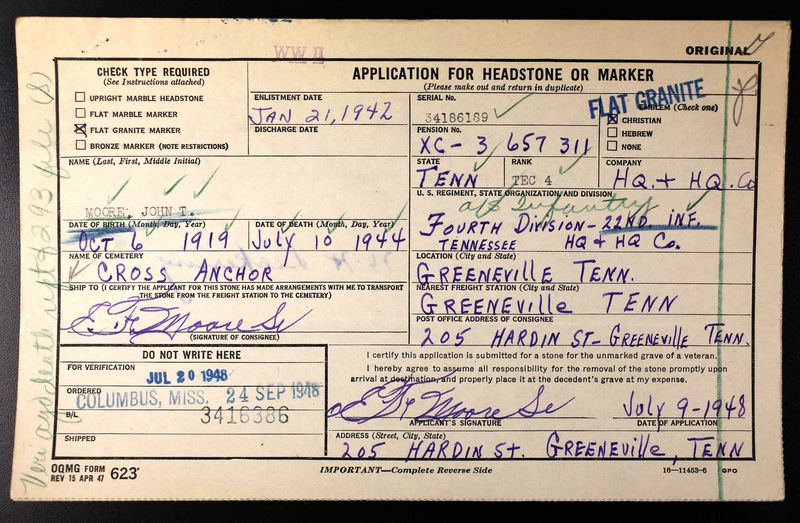 WW II
ORIGINAL
CHECK TYPE REQUIRED
(See Instructions attached)
UPRIGHT MARBLE HEADSTONE
FLAT MARBLE MARKER
FLAT GRANITE MARKER
BRONZE MARKER (NOTE RESTRICTIONS)
APPLICATION FOR HEADSTONE OR MARKER
(Please make out and return in duplicate)
ENLISTMENT DATE
JAN 21, 1942
DISCHARGE DATE
SERIAL No.
34186189
PENSION No.
XC-3 657 311
FLAT GRANITE
EMBLEM (Check one)
CHRISTIAN
HEBREW
NONE
NAME (Last, First, Middle Initial)
MOORE, JOHN T.
STATE
TENN
RANK
TEC 4
COMPANY
HQ. + HQ. Co
U. S. REGIMENT, STATE ORGANIZATION, AND DIVISION
Infantry
FOURTH DIVISION - 22ND. INF.
TENNESSEE HQ + HQ Co.
DATE OF BIRTH (Month, Day, Year)
OCT 6 1919
DATE OF DEATH (Month, Day, Year)
July 10 1944
NAME OF CEMETERY
CROSS ANCHOR
LOCATION (City and State)
GREENEVILLE TENN.
SHIP TO (I CERTIFY THE APPLICANT FOR THIS STONE HAS MADE ARRANGEMENTS WITH ME TO TRANSPORT
THE STONE FROM THE FREIGHT STATION TO THE CEMETERY)
E. F. Moore Sr
(SIGNATURE OF CONSIGNEE)
NEAREST FREIGHT STATION (City and State)
GREENEVILLE TENN
POST OFFICE ADDRESS OF CONSIGNEE
205 HARDIN ST- GREENEVILLE TENN.
DO NOT WRITE HERE
FOR VERIFICATION
JUL 20 1948
ORDERED
COLUMBUS, MISS. 24 SEP 1948
B/L
3416386
SHIPPED
I certify this application is submitted for a stone for the unmarked grave of a veteran.
I hereby agree to assume all responsibility for the removal of the stone promptly upon
arrival at destination, and properly place it at the decedent's grave at my expense.
E. F. Moore Sr
APPLICANT'S SIGNATURE
July 9-1948
DATE OF APPLICATION
ADDRESS (Street, City, State)
205 HARDIN St. GREENEVILLE, TENN
OQMG FORM
REV 15 APR 47
623
IMPORTANT—Complete Reverse Side
16—11453-6 GPO